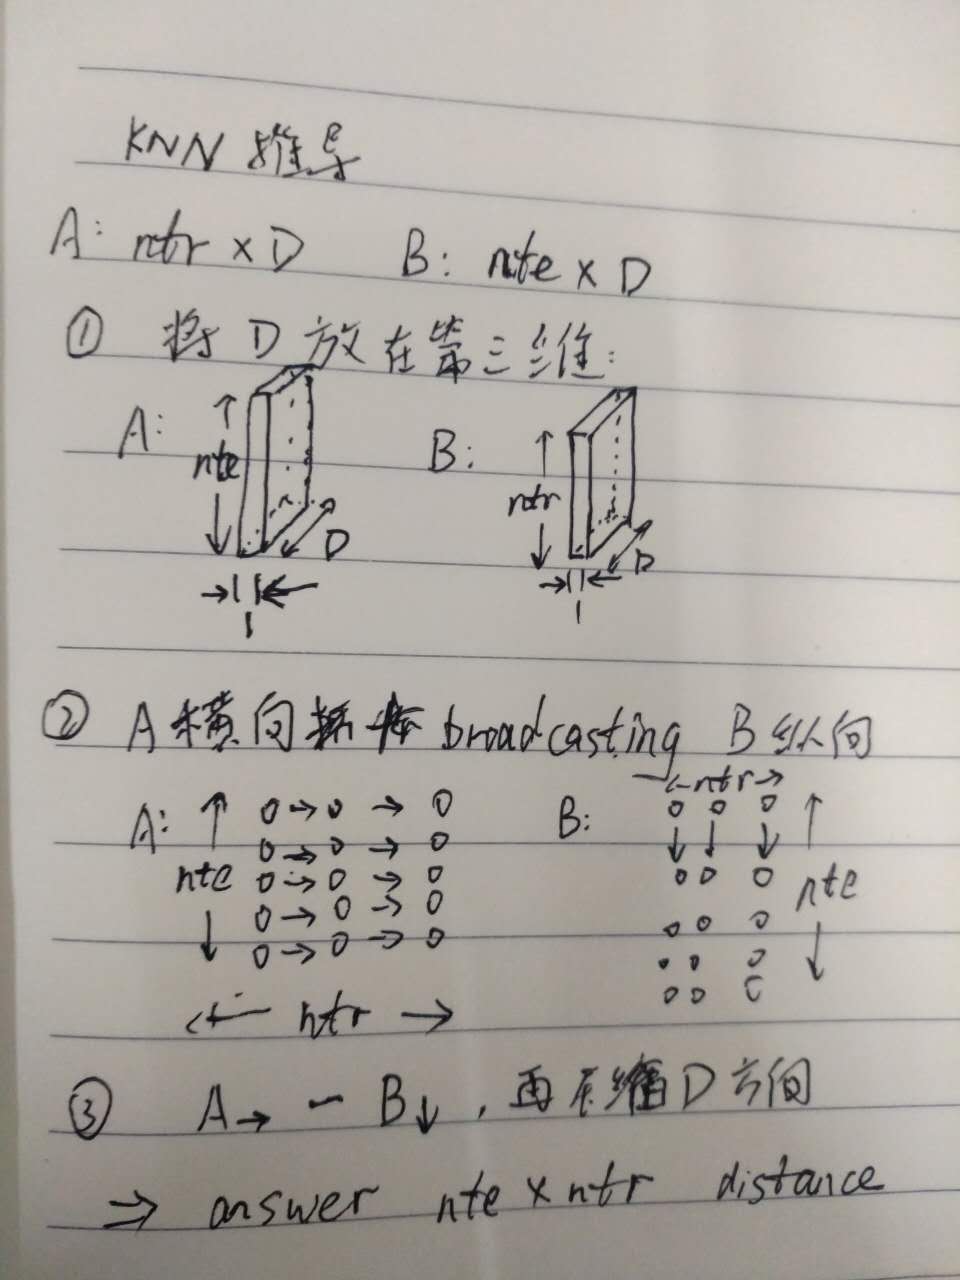 KNN 推导
A: ntr × D B: nte × D
① 将 D 放在第三维:
A: nte D 1
B: ntr D 1
② A 横向 broadcasting B 纵向
A: nte ntr
B: ntr nte
③ A→ - B↓, 再压缩 D 方向
⇒ answer nte × ntr distance